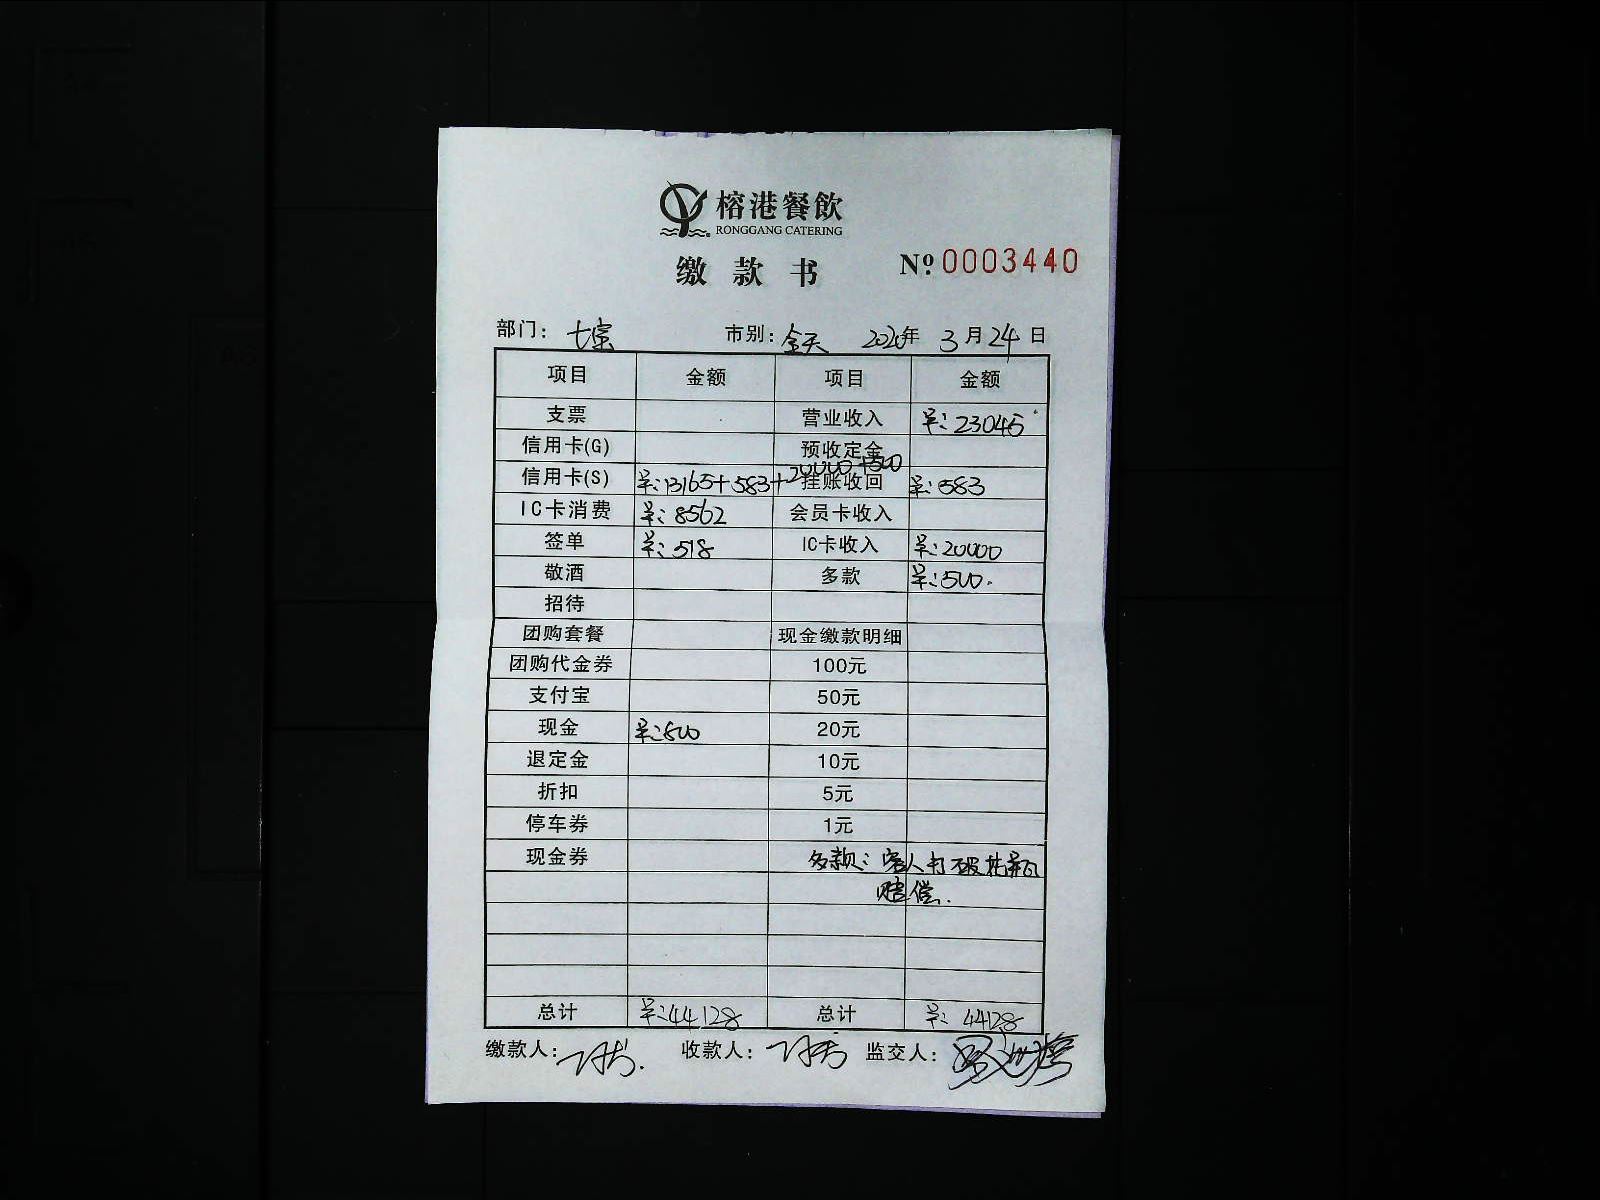 榕港餐飲
RONGGANG CATERING
缴款书 №0003440
部门： 七宗 市别：全天 2020年3月24日
项目 金额 项目 金额
支票 营业收入 ¥：23045
信用卡(G) 预收定金
信用卡(S) ¥：13165+583+20000+500 挂账收回 ¥：583
IC卡消费 ¥：8562 会员卡收入
签单 ¥：518 IC卡收入 ¥：20000
敬酒 多款 ¥：500.
招待
团购套餐 现金缴款明细
团购代金券 100元
支付宝 50元
现金 ¥：800 20元
退定金 10元
折扣 5元
停车券 1元
现金券 多款：客人打破花瓶
赔偿.
总计 ¥：44128 总计 ¥：44128
缴款人： 收款人： 监交人：